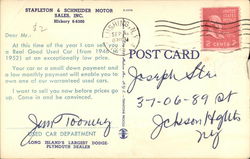 STAPLETON & SCHNEIDER MOTOR
SALES, INC.
Hickory 6-6300
$2
Dear Mr.
At this time of the year I can sell
a Reel Good Used Car (from 1946-
1952) at an exceptionally low price.
Your car or a small down payment and
a low monthly payment will enable you to
own one of our warranteed used cars.
I want to sell you now before prices go
up. Come in and be convinced.
Jim Toomey
USED CAR DEPARTMENT
LONG ISLAND'S LARGEST DODGE-
PLYMOUTH DEALER
POST CARD
Joseph
37-06-89 St
Jackson Hights
NY